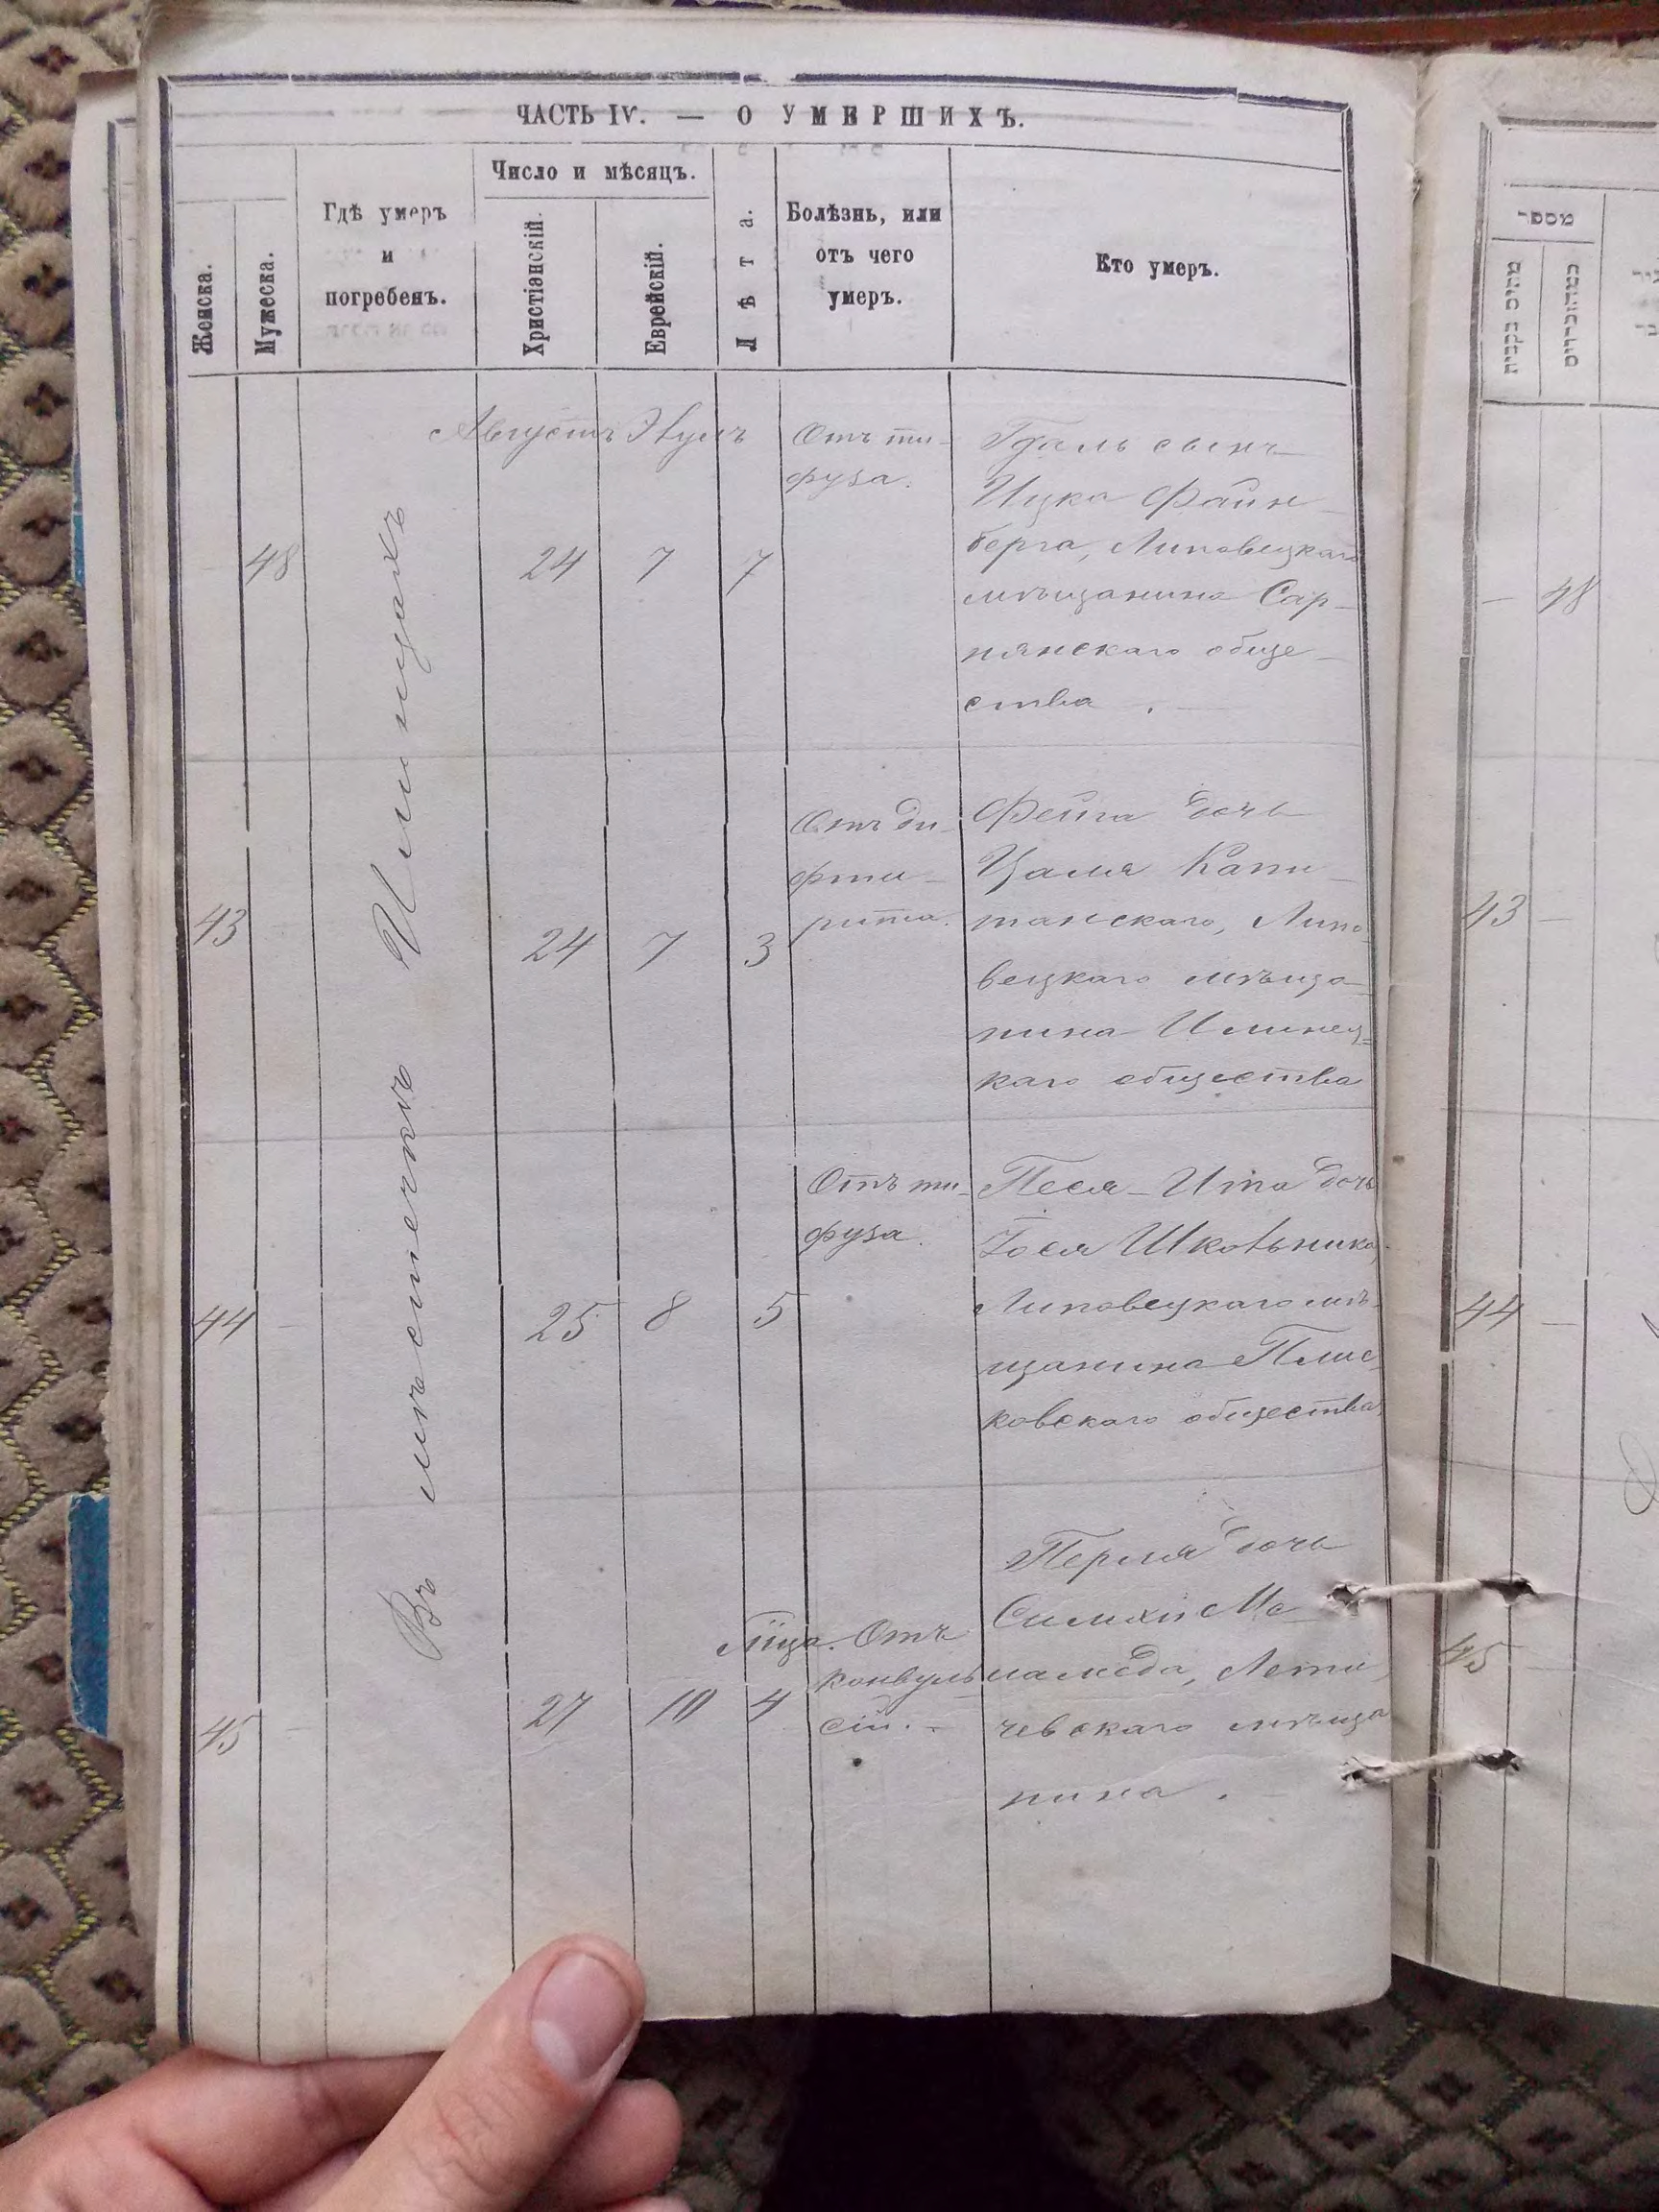 ЧАСТЬ IV. — О УМЕРШИХЪ.
Женска.
Мужеска.
Гдѣ умеръ
и
погребенъ.
Число и мѣсяцъ.
Христіанскій.
Еврейскій.
Лѣта.
Болѣзнь, или
отъ чего
умеръ.
Кто умеръ.
Въ мѣстечкѣ Илинцахъ
Августъ Элулъ
48
24 7 7
Отъ ти-
фуза.
Гдаль сынъ
Ицка Файн-
берга, Липовецкаго
мѣщанина Сар-
нянскаго обще-
ства.
43
24 7 3
Отъ ди-
фте-
рита.
Фейга дочь
Цаля Капи-
танскаго, Липо-
вецкаго мѣща-
нина Илинец-
каго общества
44 —
25 8 5
Отъ ти-
фуза.
Песя-Ита дочь
Іося Школьника,
Липовецкаго мѣ-
щанина Плис-
ковскаго общества
45 —
27 10 4
Отъ
конвуль-
сіи. -
Перля дочь
Симхи
Лети-
чевскаго мѣща
нина.
מספר
— 48
43 —
44 —
45